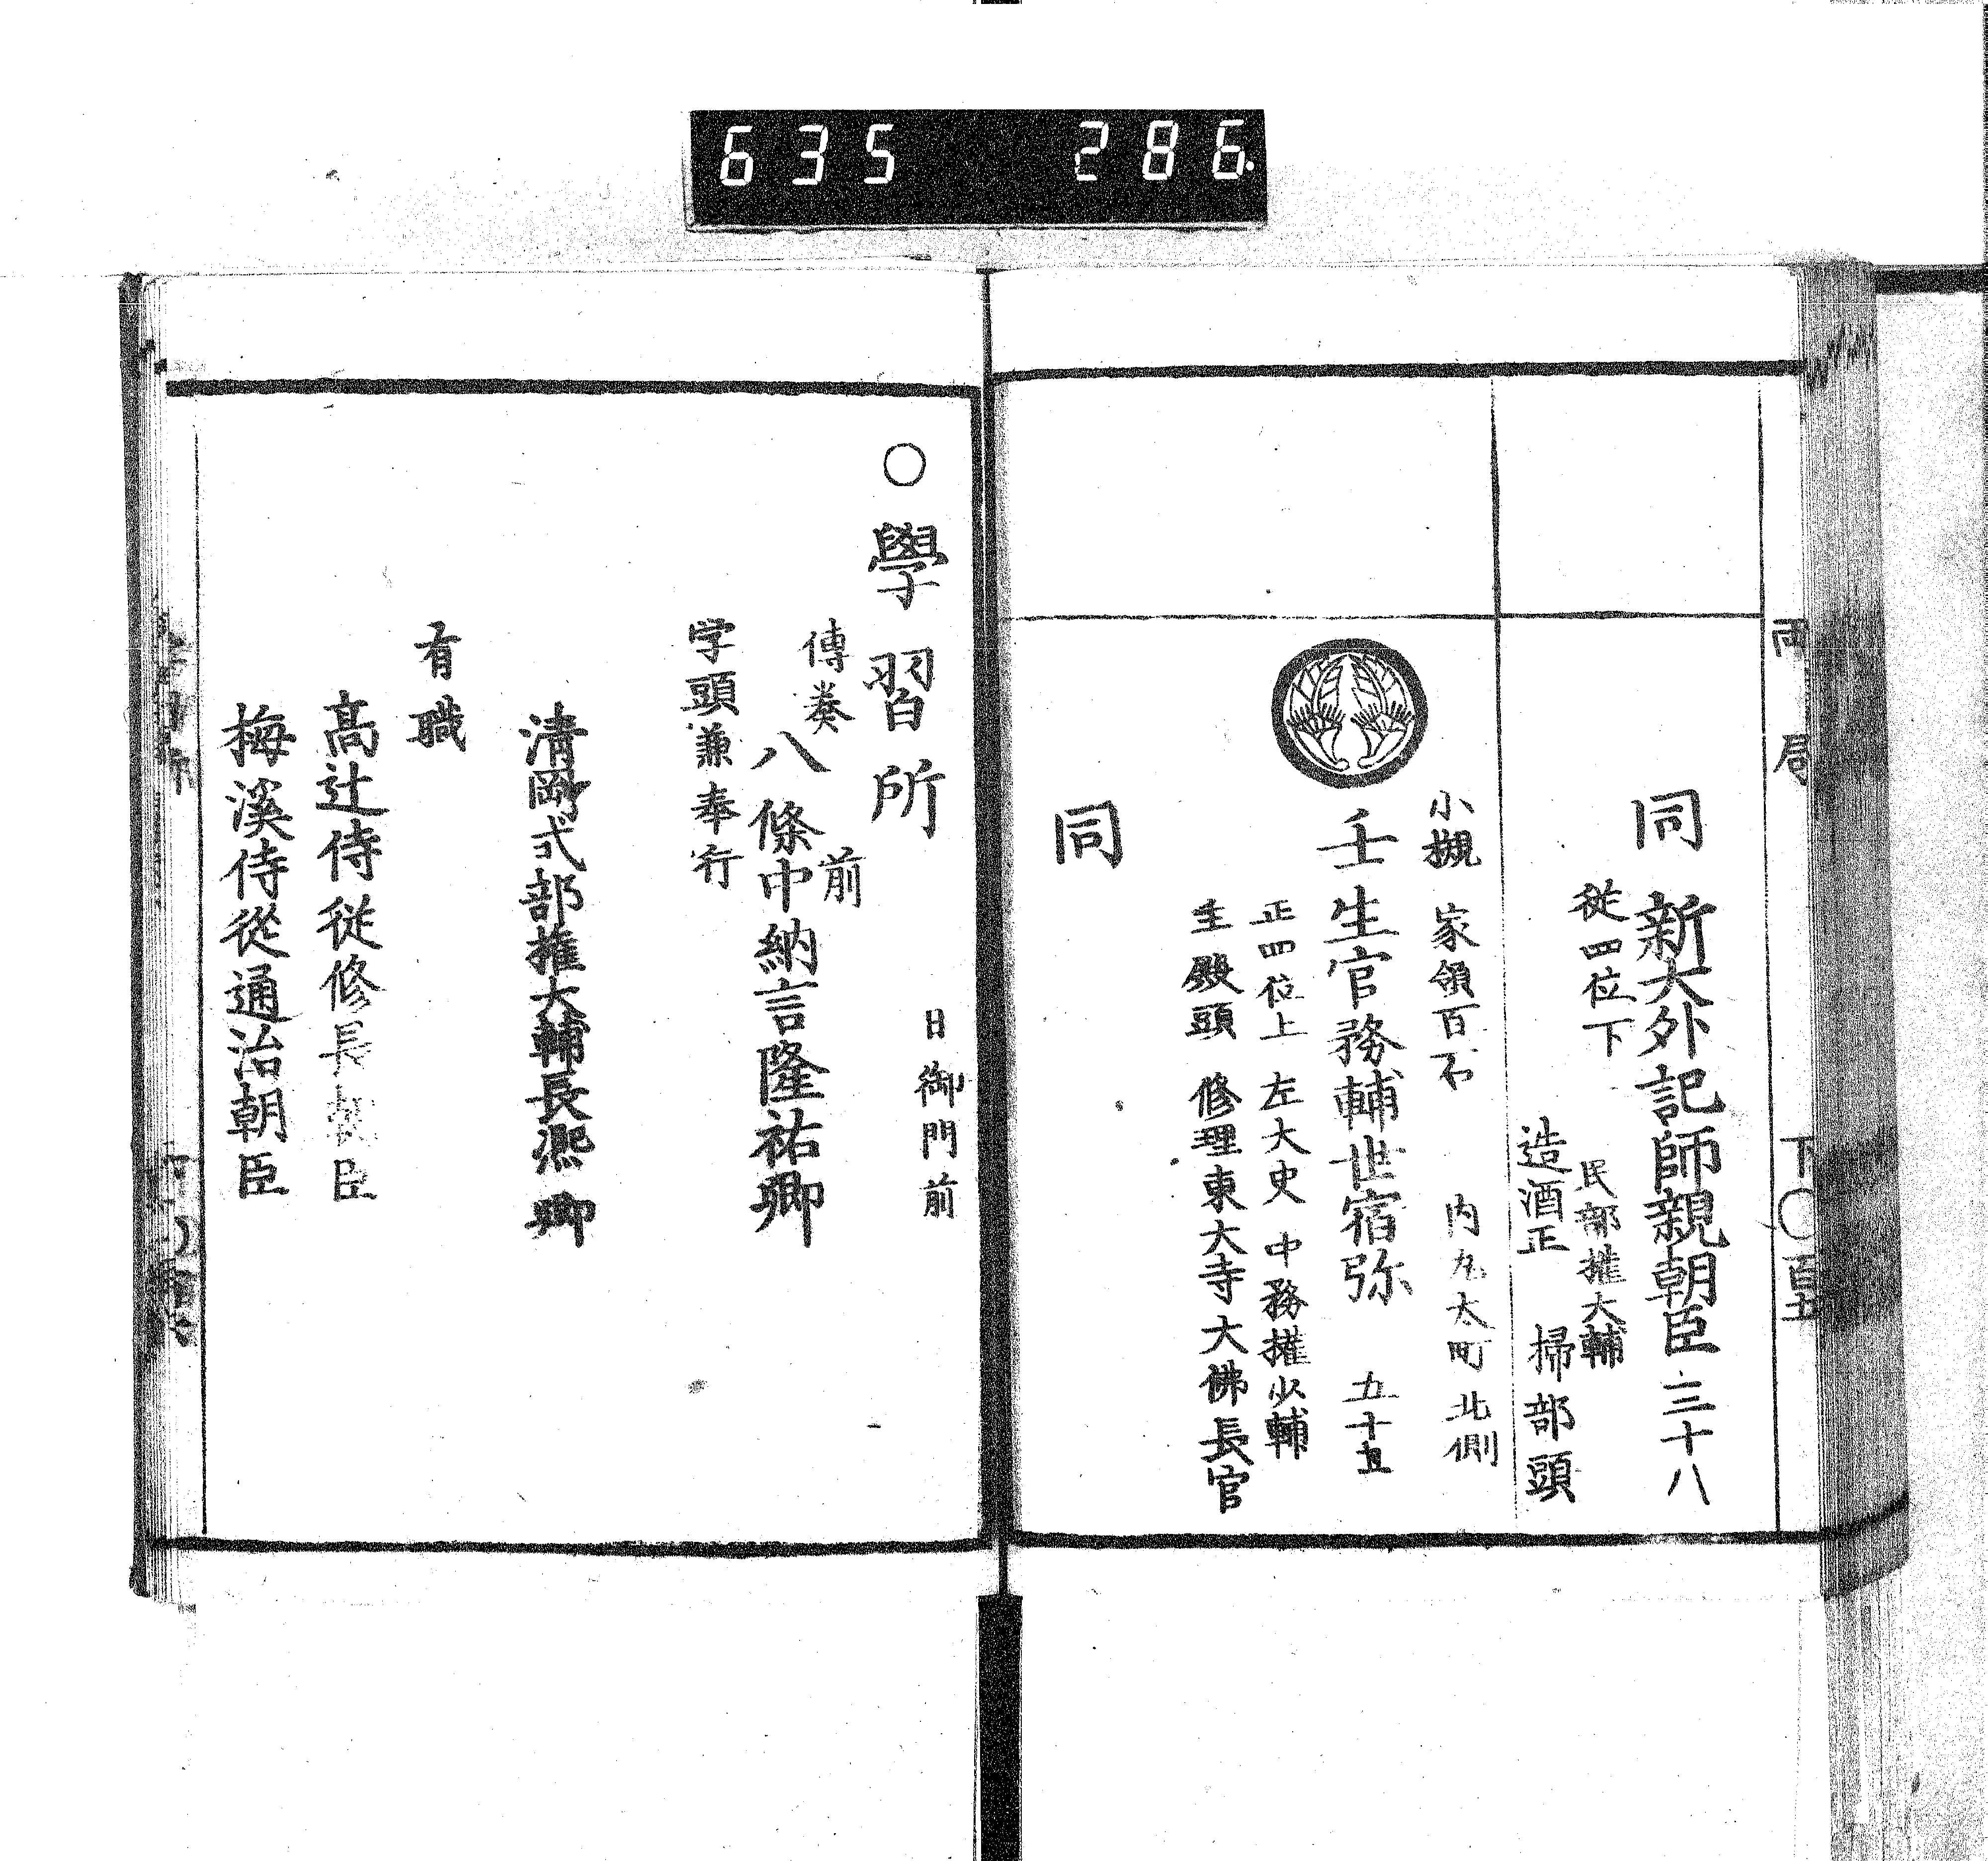 635 286.
両局
下〇百五
同 新大外記師親朝臣 三十八
従四位下 民部権大輔
造酒正 掃部頭
小槻 家領百石 内丸太町北側
壬生官務輔世宿弥 五十五
正四位上 左大史 中務権少輔
主殿頭 修理東大寺大佛長官
同
日御門前
〇學習所
傳奏
前
八條中納言隆祐卿
学頭兼奉行
清岡式部権大輔長熈卿
有職
髙辻侍従修長朝臣
梅溪侍從通治朝臣